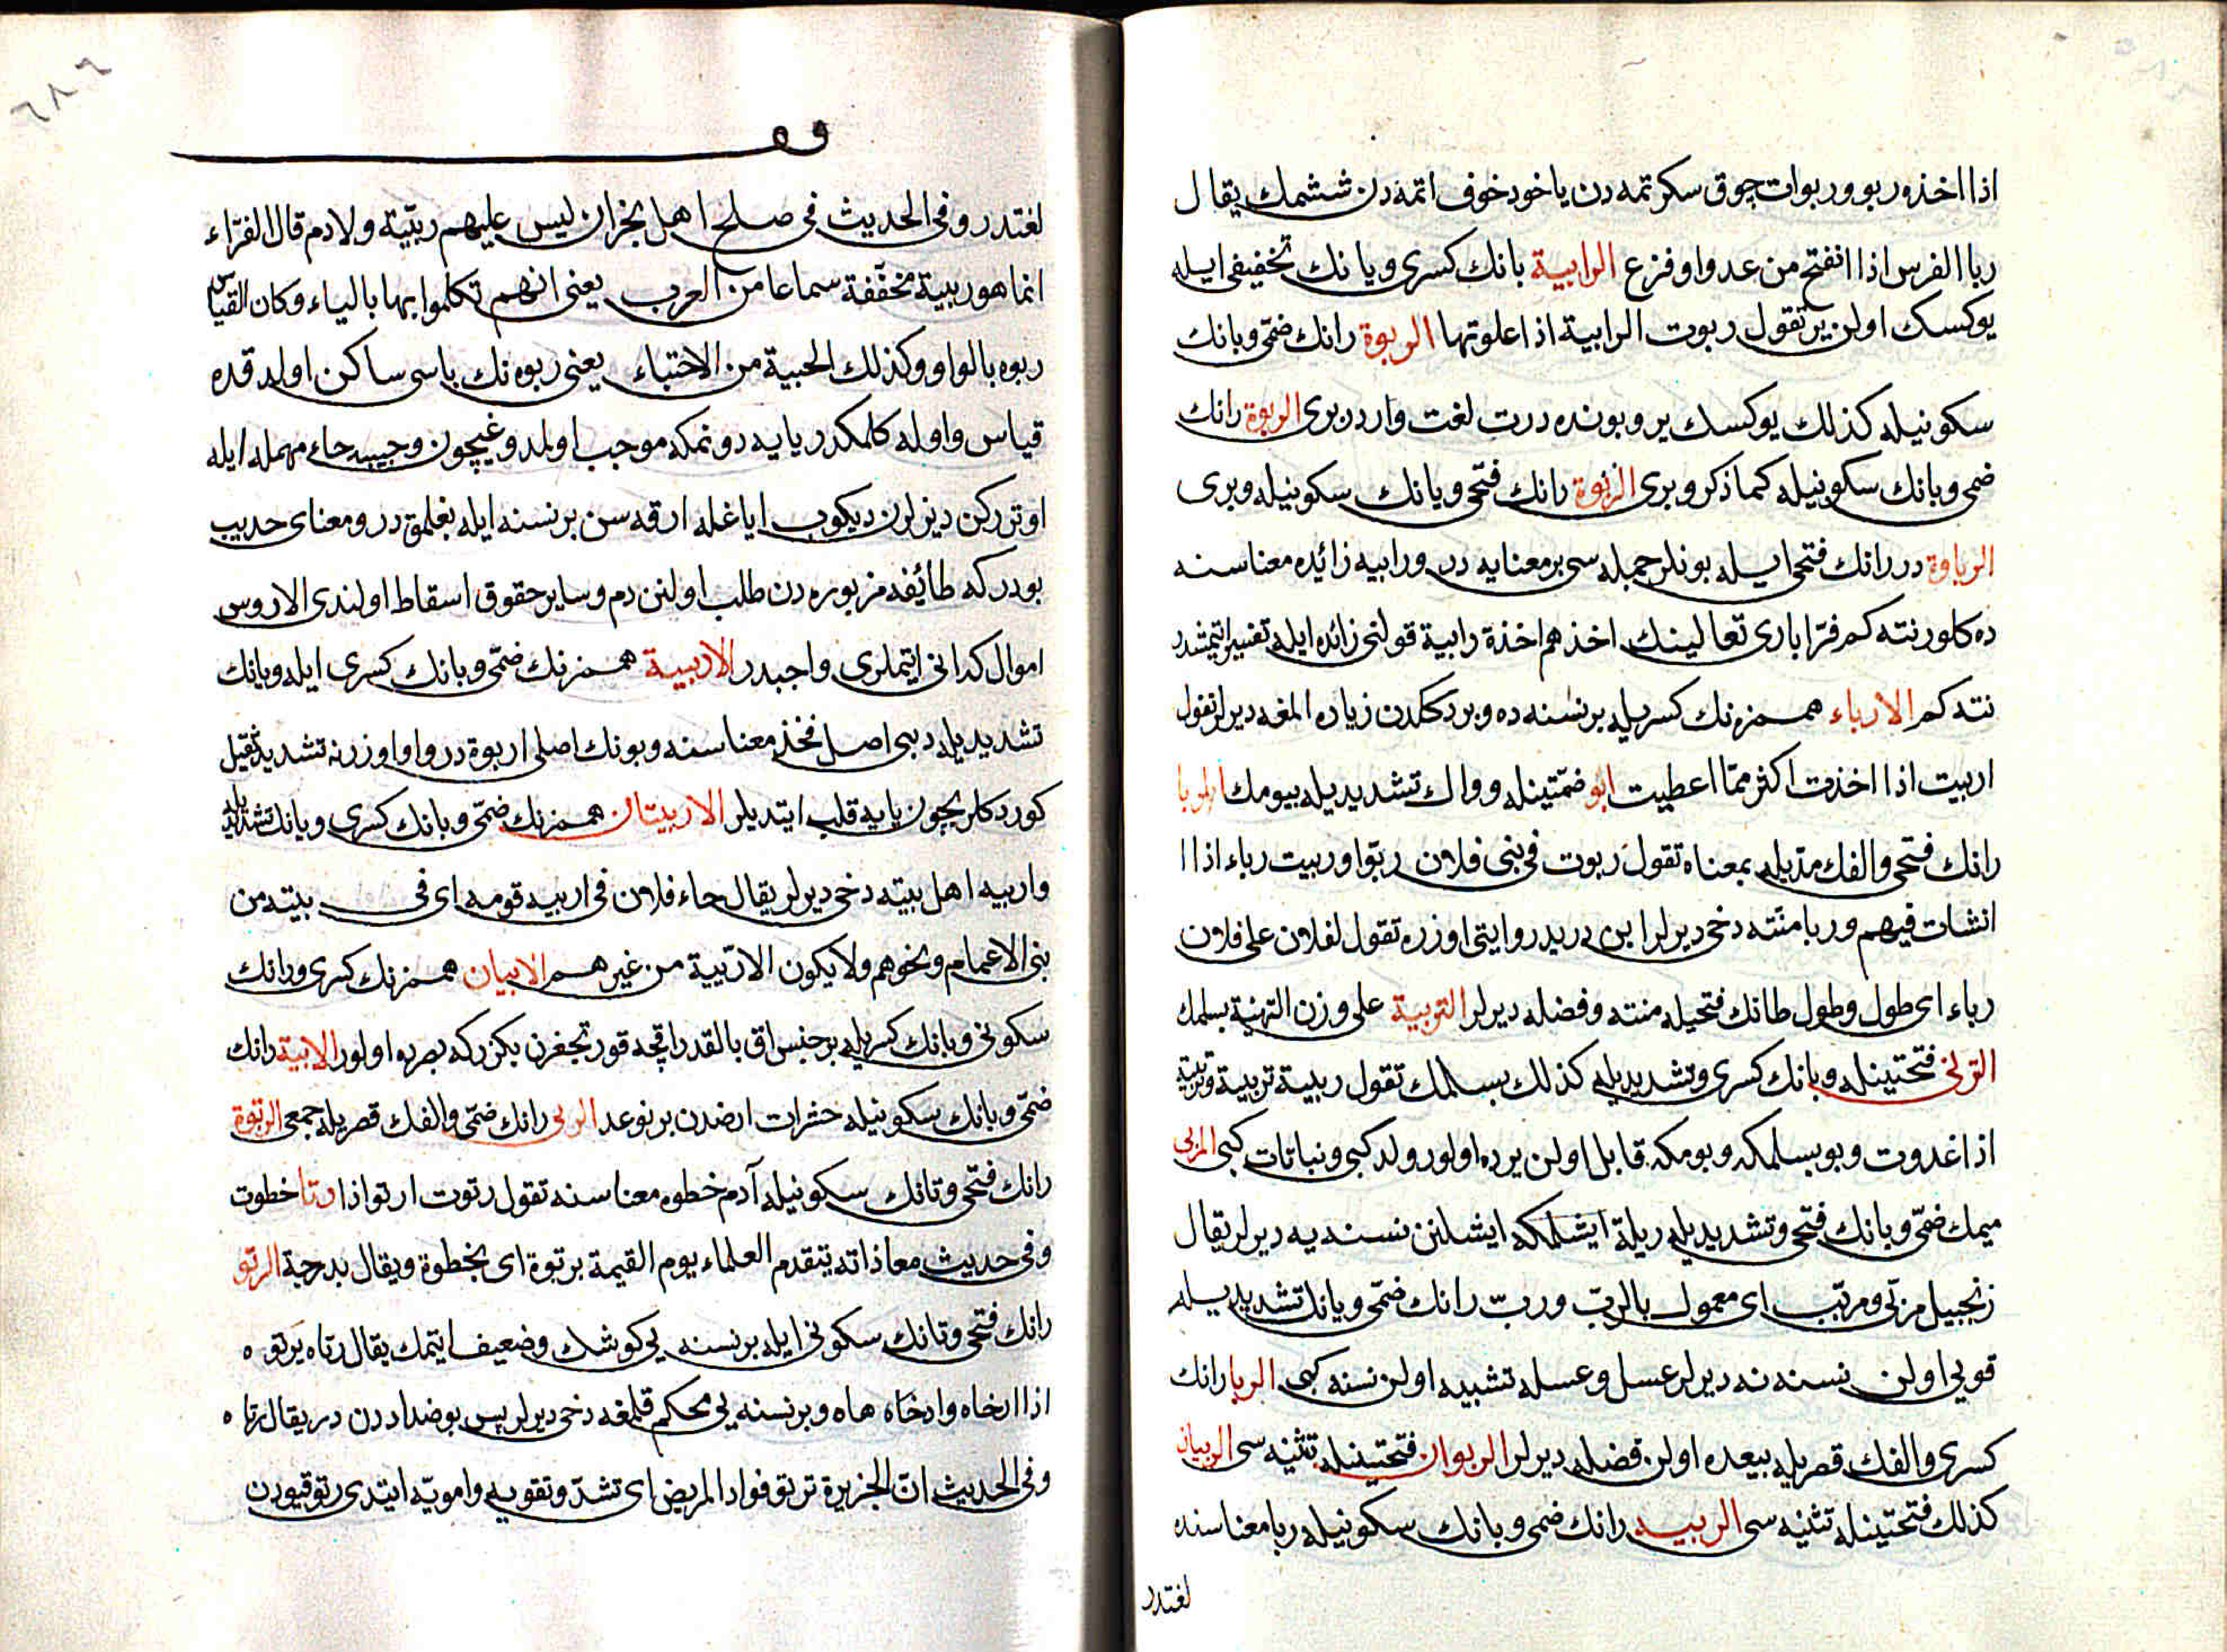 اذا اخذه ربو وربوات چوق سكرتمه دن ياخود خوف اتمه دن ششمك يقال
ربا الفرس اذا انفتح من عدو او فزع الرابية بانك كسرى ويانك تخفيفى ايله
يوكسك اولن ير تقول ربوت الرابية اذا علوتها الربوة رانك ضمّى وبانك
سكونيله كذلك يوكسك ير وبونده درت لغت واردر برى الربوة رانك
ضمى وبانك سكونيله كما ذكر وبرى الربوة رانك فتحى وبانك سكونيله وبرى
الرباوة در رانك فتحى ايله بونلر جمله سى بر معنايه در ورابيه زائده معناسنه
ده كلور نته كم فرّا بارى تعالينك اخذهم اخذة رابية قولنى زائده ايله تفسير اتيمشدر
نته كم الارباء همزه نك كسريله بر نسنه ده ويردككدن زياده المغه ديرلر تقول
اربيت اذا اخذت اكثر ممّا اعطيت ضمّتينله وواك تشديديله بيومك
رانك فتحى والفك مدّيله بمعناه تقول ربوت فى بنى فلان ربوّا وربيت رباء اذا ا
انشات فيهم وربا منّته دخى ديرلر ابن دريد روايتى اوزره تقول لفلان على فلان
رباء اى طول وطول طانك فتحيله منته وفضله ديرلر التربية على وزن التهنية بسلمك
فتحتينله وبانك كسرى وتشديديله كذلك بسلمك تقول ربيته تربية
اذا غدوت وبو بسلمكه وبومكه قابل اولن يرده اولور ولد كبى ونباتات كبى المربى
ميمك ضمّى وبانك فتحى وتشديديله ايشلنن نسنه يه ديرلر يقال
زنجبيل مربّى ومربّب اى معمول بالربّ وربّ رانك ضمّى وبانك تشديديله
قويى اولن نسنه نه ديرلر عسل وعسله تشبيه اولن نسنه كبى الربا رانك
كسرى والفك قصريله بيعده اولن فضله ديرلر الربوان فتحتينله تثنيه سى الربيان
كذلك فتحتينله تثنيه سى الربيه رانك ضمى وبانك سكونيله ربا معناسنه
لغتدر
٦٨٦
لغتدر وفى الحديث فى صلح اهل نجران ليس عليهم ربّيّة ولا دم قال الفرّاء
انما هو ربية مخفّفة سماعا من العرب يعنى انهم تكلموا بها بالياء وكان القياس
ربوه بالواو وكذلك الحبية من الاحتباء يعنى ربوه نك باسى ساكن اولدقده
قياس واوله كلمكدر يايه دونمكه موجب اولمدوغيچون وحبيه حاء مهمله ايله
اوتررکن دیزلرن دیکوب اياغله ارقه سن بر نسنه ايله بغلمقدر ومعناى حديث
بودر كه طائفه مزبوره دن طلب اولنن دم وساير حقوق اسقاط اولندى الا روس
اموال كه انى ايتملرى واجبدر الاربيية همزه نك ضمّى وبانك كسرى ايله ويانك
تشديديله دبى اصل فخذ معناسنه وبونك اصلى اربوة در واو اوزرنه تشديد ثقيل
كوردكلريچون يايه قلب ايتديلر الاربيتان همزه نك ضمّى وبانك كسرى ويانك تشديديله
واربيه اهل بيته دخى ديرلر يقال جاء فلان فى اربيه قومه اى فى بيته من
بنى الاعمام ونحوهم ولا يكون الاربّيية من غيرهم الاربيان همزه نك كسرى ورانك
سكونى وبانك كسريله بر جنس اق بالقدر بكزر كه بصره ده اولور الربية رانك
ضمّى وبانك سكونيله حشرات ارضدن بر نوعدر الربى رانك ضمّى والفك قصريله جمعى الرتوة
رانك فتحى وتانك سكونيله آدم خطوه معناسنه تقول رتوت ارتو اذا رتا خطوت
وفى حديث معاذ انه يتقدم العلماء يوم القيمة برتوة اى بخطوة ويقال بدرجة الرتو
رانك فتحى وتانك سكونى ايله بر نسنه يى كوشك وضعيف ايتمك يقال رتاه يرتوه
اذا ارخاه وارخاه هاه وبر نسنه يى محكم قلمغه دخى ديرلر پس بو ضداددن در يقال رتاه
وفى الحديث انّ الخزيرة ترتو فواد المريض اى تشدّ وتقويه وامويّه ايتدى رتو قيودن